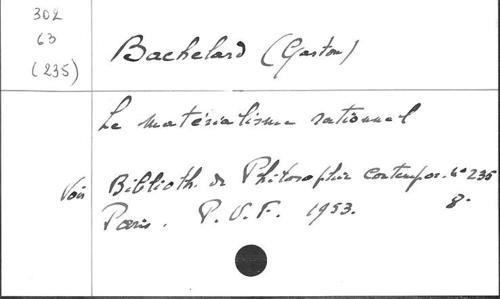 302
63
(235)
Bachelard (Gaston)
Le matérialisme rationnel
Voir Biblioth. de Philosophie contempor. n° 235
Paris. P.U.F. 1953. 8°